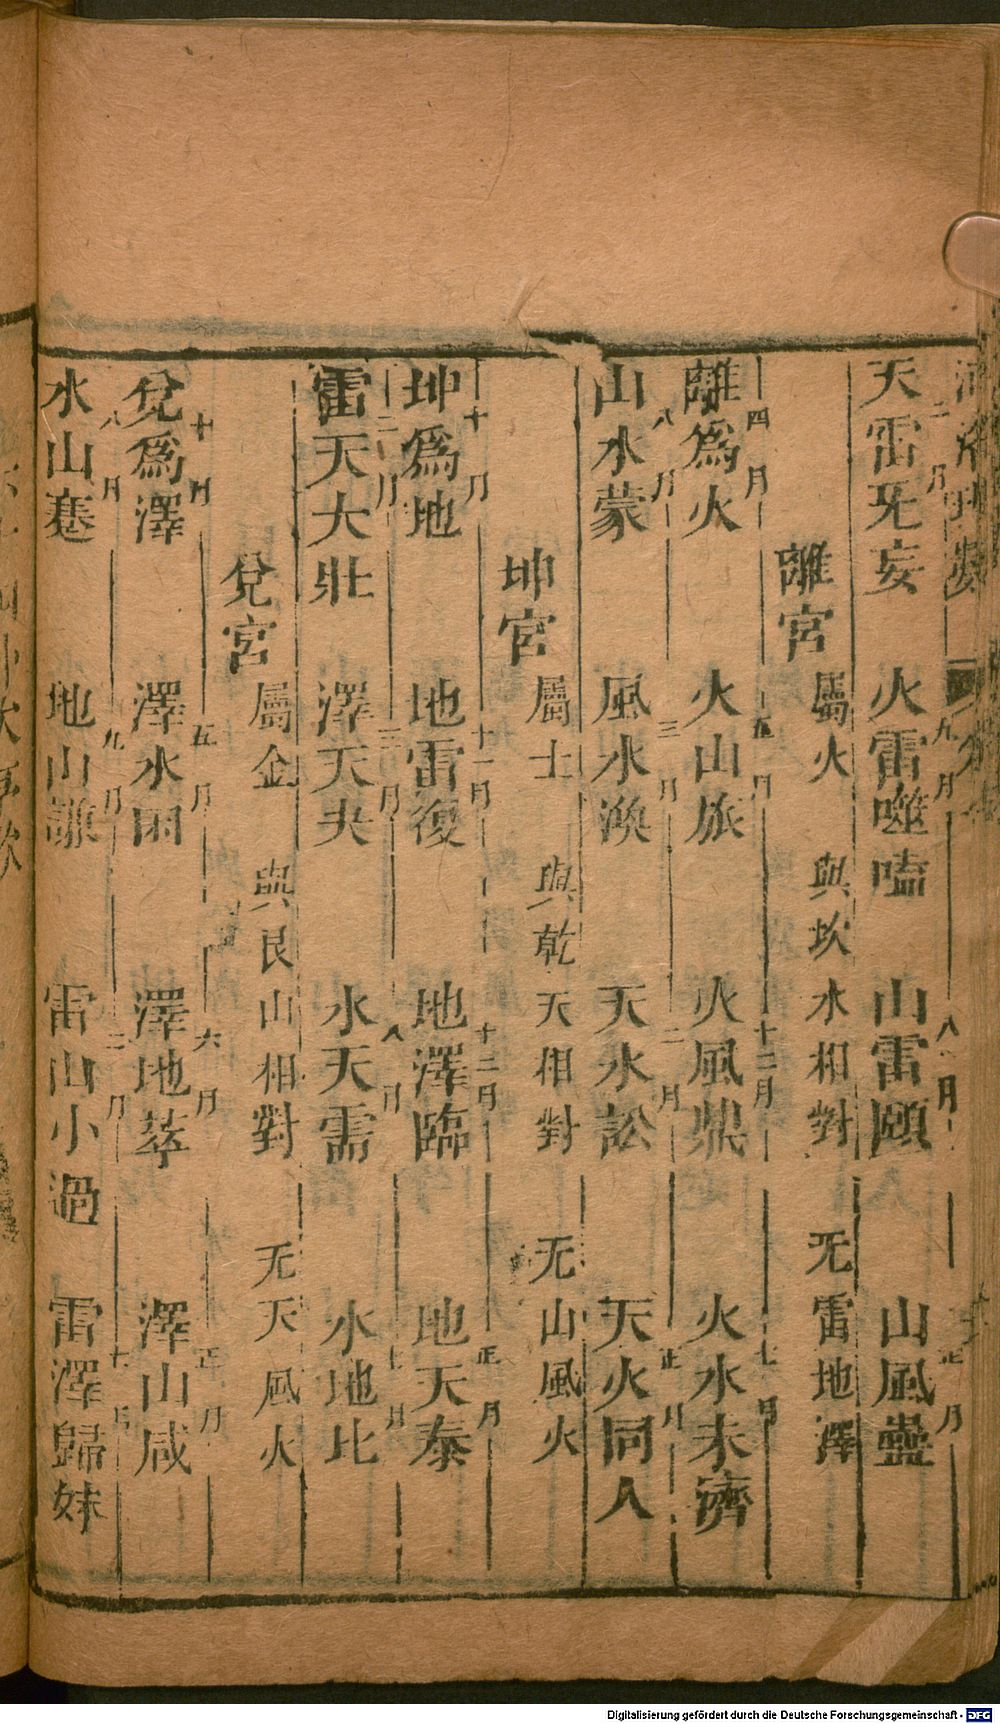 天雷无妄 火雷噬嗑 山雷頤 山風蠱
二月 九月 八月 正月
離宮 屬火 與坎水相對 无雷地澤
離爲火 火山旅 火風鼎 火水未濟
四月 五月 十二月 七月
山水蒙 風水渙 天水訟 天火同人
八月 三月 二月 正月
坤宮 屬土 與乾天相對 无山風火
坤爲地 地雷復 地澤臨 地天泰
十月 十一月 十二月 正月
雷天大壯 澤天夬 水天需 水地比
二月 三月 八月 七月
兌宮 屬金 與艮山相對 无天風火
兌爲澤 澤水困 澤地萃 澤山咸
十月 五月 六月 正月
水山蹇 地山謙 雷山小過 雷澤歸妹
八月 九月 二月 七月
Digitalisierung gefördert durch die Deutsche Forschungsgemeinschaft - DFG